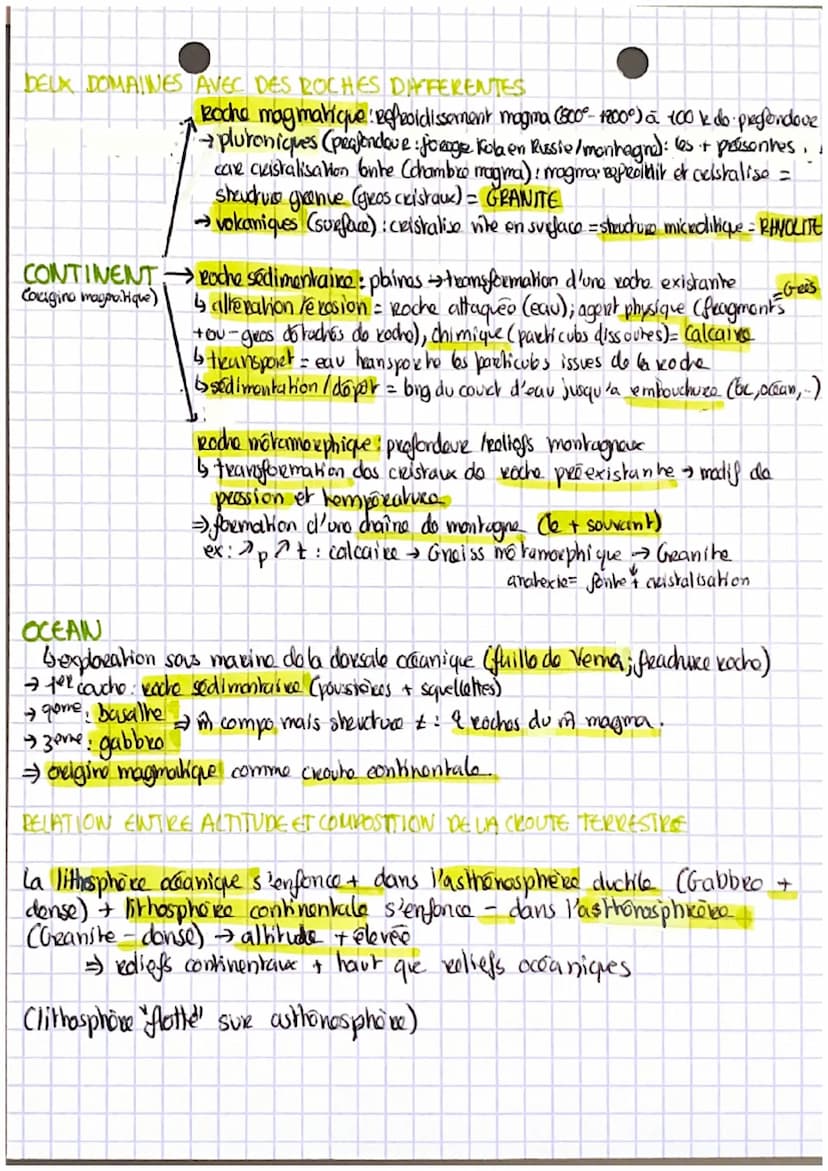 DEUX DOMAINES AVEC DES ROCHES DIFFERENTES
Roche magmatique : refroidissement magma (800° - 1200°) à 100 k de profondeur
→ plutoniques (profondeur : forage Kola en Russie/montagne) : les + présentes.
car cristalisation lente (chambre magma) : magma refroidit et cristalise =
structure grenue (gros cristaux) = GRANITE
→ volcaniques (surface) : cristalise vite en surface = structure microlitique = RHYOLITE
CONTINENT → roche sédimentaire : plaines → transformation d'une roche existante
(origine magmatique)
↳ altération/érosion = Roche attaquée (eau) ; agent physique (fragments = Grès
+ ou - gros détachés de roche), chimique (particules dissoutes) = Calcaire
↳ transport = eau transporte les particules issues de la roche
↳ sédimentation/dépôt = long du court d'eau jusqu'à embouchure (lac, océan,..)
Roche métamorphique : profondeur/reliefs montagneux
↳ transformation des cristaux de roche préexistante → modif de
pression et température
⇒ formation d'une chaîne de montagne (le + souvent)
ex : ↗p ↗t : calcaire → Gneiss métamorphique → Granite
anatexie = fonte + cristalisation
OCEAN
↳ exploration sous marine de la dorsale océanique (faille de Vema ; fracture roche)
→ 1er couche : roche sédimentaire (poussières + squelettes)
→ 2ème : basalte ⇒ m̂ compo mais structure ≠ : 2 roches du m̂ magma.
→ 3ème : gabbro
⇒ origine magmatique comme croute continentale.
RELATION ENTRE ALTITUDE ET COMPOSITION DE LA CROUTE TERRESTRE
La lithosphère océanique s'enfonce + dans l'asthénosphère ductile (Gabbro +
dense) + lithosphère continentale s'enfonce - dans l'asthénosphrère
(Granite - dense) → altitude + élevée
⇒ reliefs continentaux + haut que reliefs océaniques
(lithosphère "flotte" sur asthénosphère)